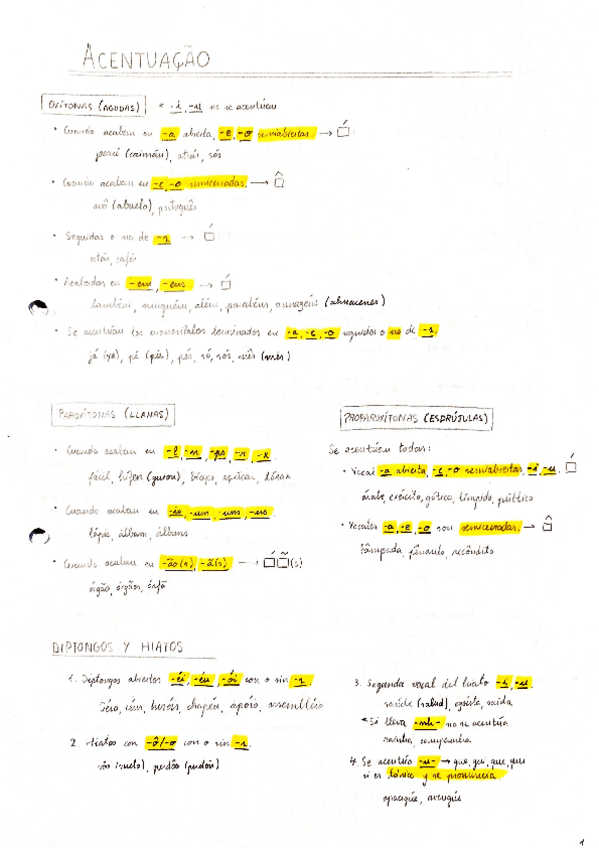 ACENTUAÇÃO
OXÍTONAS (AGUDAS) * -i, -u no se acentúan
• Cuando acaban en -a abierta, -e, -o semiabiertas → □́
jacaré (caimán), atrás, sós
• Cuando acaban en -e, -o semicerradas → □̂
avô (abuelo), português
• Seguidas o no de -s → □́
atrás, cafés
• Acabadas en -em, -ens → □́
também, ninguém, além, parabéns, armazéns (almacenes)
• Se acentúan los monosílabos terminados en -a, -e, -o seguidos o no de -s.
já (ya), pé (pie), pés, só, sós, mês (mes)
PAROXÍTONAS (LLANAS)
• Cuando acaban en -l, -n, -ps, -r, -x
fácil, hífen (guion), bíceps, açúcar, tórax
• Cuando acaban en -um, -uns, -us
lápis, álbum, álbuns
• Cuando acaban en -ão(s), -ã(s) → □́ □̃(s)
órgão, órgãos, órfã
PROPAROXÍTONAS (ESDRÚJULAS)
Se acentúan todas:
• Vocal -a abierta, -e, -o semiabiertas, -i, -u. □́
árabe, exército, gótico, límpido, público
• Vocales -a, -e, -o son semicerradas → □̂
lâmpada, fêmundo, recôndito
DIPTONGOS Y HIATOS
1. Diptongos abiertos -éi, -éu, -ói con o sin -s.
céu, heróis, chapéu, apóio, assembléia
2. Hiatos con -ô/-o con o sin -s.
vôo (vuelo), perdôo (perdón)
3. Segunda vocal del hiato -i, -u.
saúde (salud), egoísta, saída
* Si lleva -nh- no se acentúa
rainha, campainha
4. Se acentúa -u- → que, gui, que, qui
si es tónica y se pronuncia
apazigúe, averigúe
1